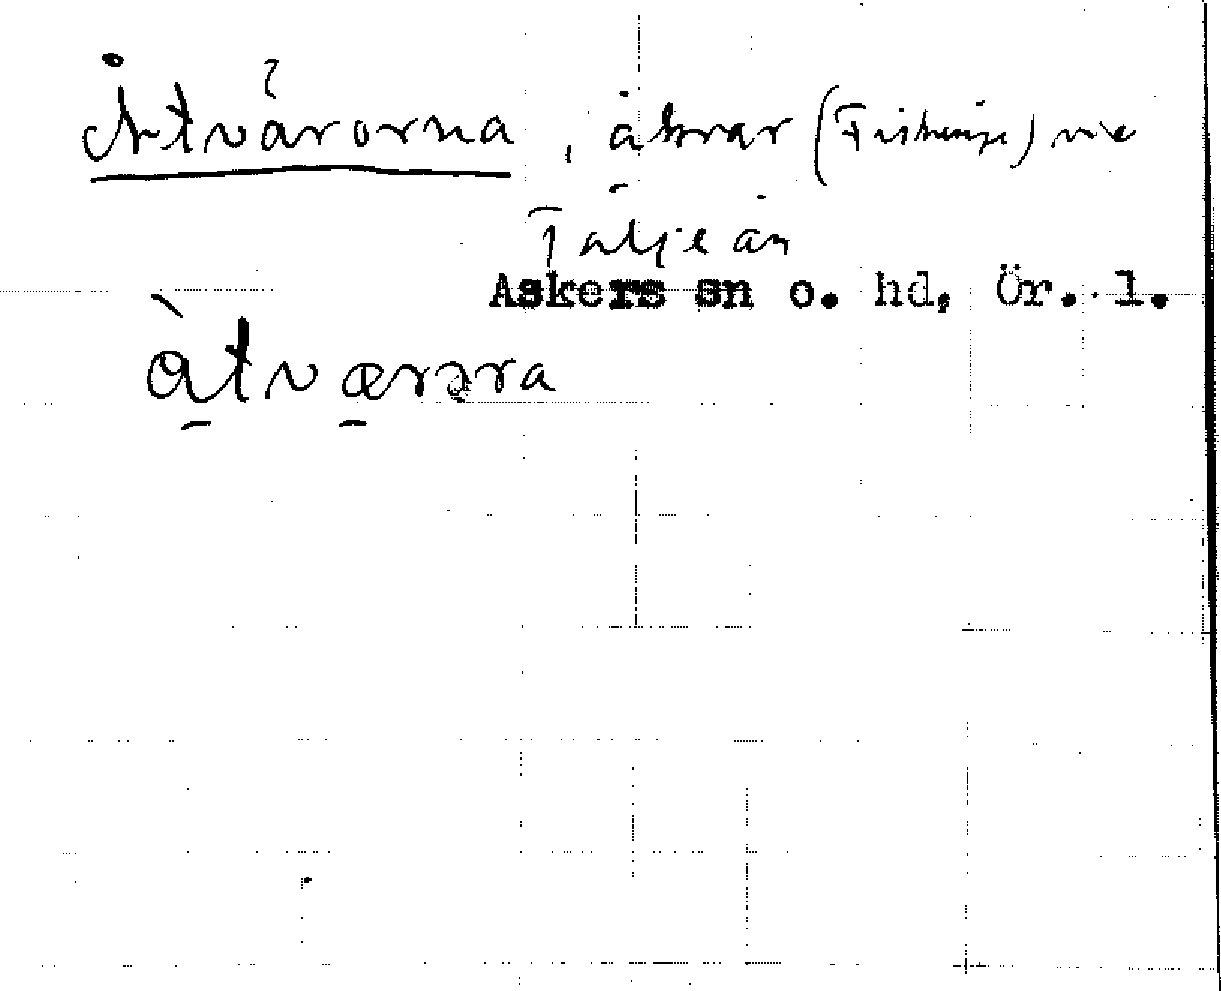 Åtvärorna, åkrar (Fiskinge) vid
Täljeån
Askers sn o. hd, Ör. l.
àtværəra